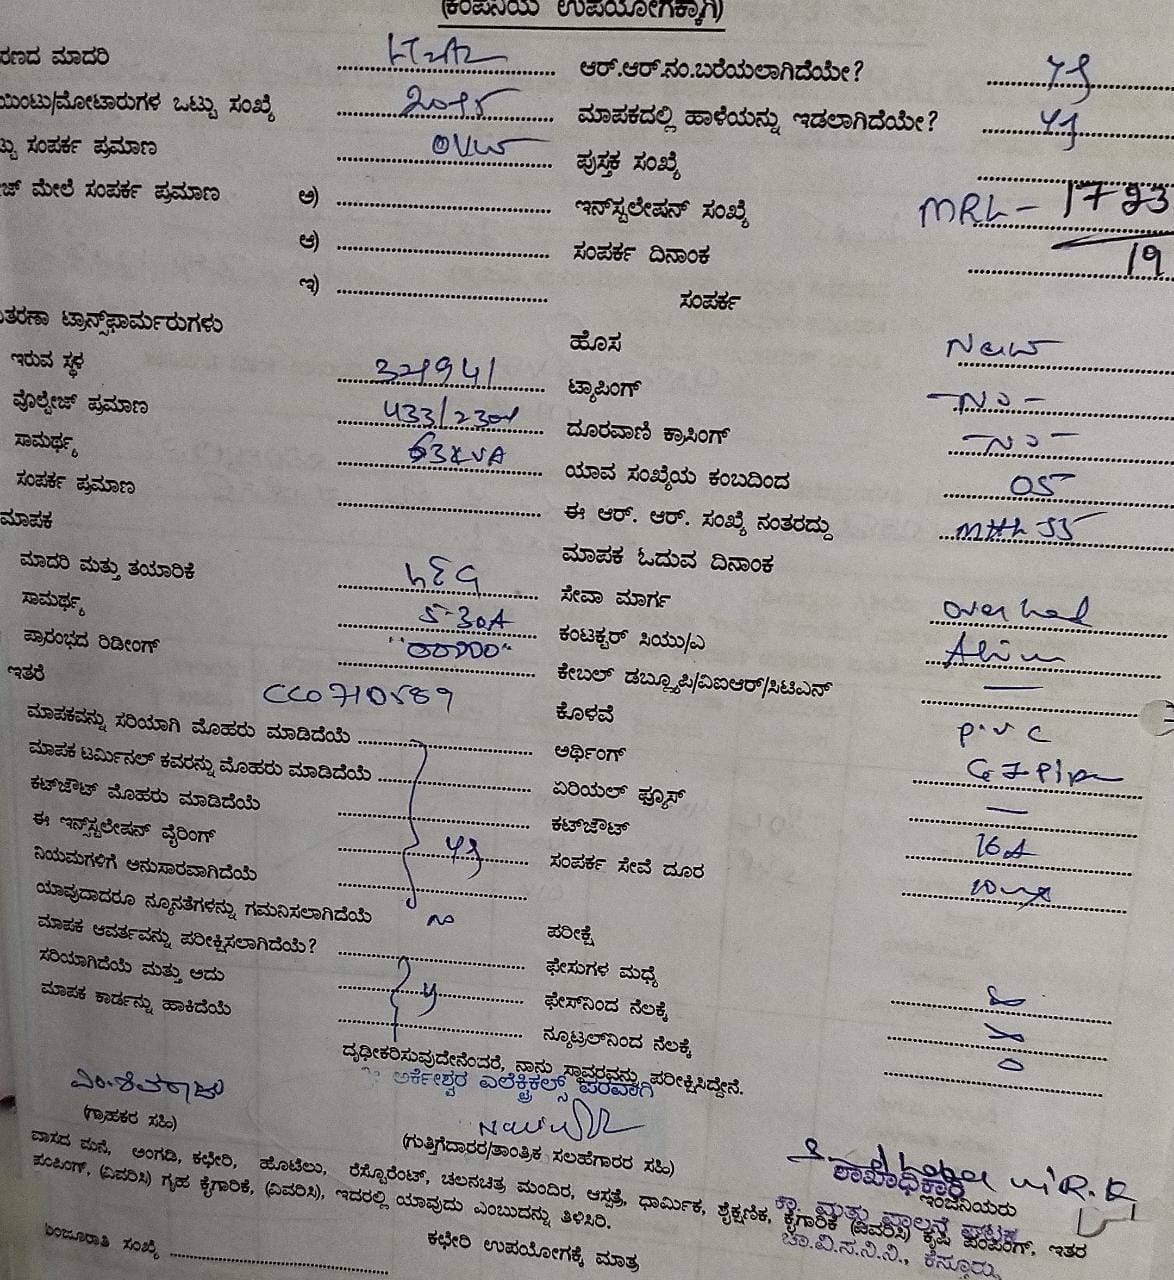 (ಕಂಪನಿಯ ಉಪಯೋಗಕ್ಕಾಗಿ)
ರಣದ ಮಾದರಿ LT2A2 ಆರ್.ಆರ್.ನಂ.ಬರೆಯಲಾಗಿದೆಯೇ?
ಯಿಂಟು/ಮೋಟಾರುಗಳ ಒಟ್ಟು ಸಂಖ್ಯೆ ಮಾಪಕದಲ್ಲಿ ಹಾಳೆಯನ್ನು ಇಡಲಾಗಿದೆಯೇ?
ಟ್ಟು ಸಂಪರ್ಕ ಪ್ರಮಾಣ ಪುಸ್ತಕ ಸಂಖ್ಯೆ
ಜ್ ಮೇಲೆ ಸಂಪರ್ಕ ಪ್ರಮಾಣ ಅ) ಇನ್‌ಸ್ಟಲೇಷನ್ ಸಂಖ್ಯೆ MRL-1723
ಆ) ಸಂಪರ್ಕ ದಿನಾಂಕ 19
ಇ) ಸಂಪರ್ಕ
ತರಣಾ ಟ್ರಾನ್ಸ್‌ಫಾರ್ಮರುಗಳು ಹೊಸ New
ಇರುವ ಸ್ಥಳ ಟ್ಯಾಪಿಂಗ್ -NO-
ವೊಲ್ಟೇಜ್ ಪ್ರಮಾಣ 433/230V ದೂರವಾಣಿ ಕ್ರಾಸಿಂಗ್ -NO-
ಸಾಮರ್ಥ್ಯ 63KVA ಯಾವ ಸಂಖ್ಯೆಯ ಕಂಬದಿಂದ 05
ಸಂಪರ್ಕ ಪ್ರಮಾಣ ಈ ಆರ್. ಆರ್. ಸಂಖ್ಯೆ ನಂತರದ್ದು
ಮಾಪಕ ಮಾಪಕ ಓದುವ ದಿನಾಂಕ
ಮಾದರಿ ಮತ್ತು ತಯಾರಿಕೆ ಸೇವಾ ಮಾರ್ಗ
ಸಾಮರ್ಥ್ಯ 5-30A ಕಂಟಕ್ಟರ್ ಸಿಯು/ಎ
ಪ್ರಾರಂಭದ ರಿಡೀಂಗ್ "00000" ಕೇಬಲ್ ಡಬ್ಲ್ಯೂಪಿ/ವಿಐಆರ್/ಸಿಟಿಎನ್ —
ಇತರೆ CC0710589 ಕೊಳವೆ P.V.C
ಮಾಪಕವನ್ನು ಸರಿಯಾಗಿ ಮೊಹರು ಮಾಡಿದೆಯೆ ಆರ್ಥಿಂಗ್ GI Pipe
ಮಾಪಕ ಟರ್ಮಿನಲ್ ಕವರನ್ನು ಮೊಹರು ಮಾಡಿದೆಯೆ ಏರಿಯಲ್ ಫ್ಯೂಸ್ —
ಕಟ್‌ಜೌಟ್ ಮೊಹರು ಮಾಡಿದೆಯೆ ಕಟ್‌ಜೌಟ್ 16A
ಈ ಇನ್ಸ್‌ಸ್ಟಲೇಷನ್ ವೈರಿಂಗ್ ಸಂಪರ್ಕ ಸೇವೆ ದೂರ
ನಿಯಮಗಳಿಗೆ ಅನುಸಾರವಾಗಿದೆಯೆ
ಯಾವುದಾದರೂ ನ್ಯೂನತೆಗಳನ್ನು ಗಮನಿಸಲಾಗಿದೆಯೆ no ಪರೀಕ್ಷೆ
ಮಾಪಕ ಆವರ್ತವನ್ನು ಪರೀಕ್ಷಿಸಲಾಗಿದೆಯೆ? ಫೇಸುಗಳ ಮಧ್ಯೆ
ಸರಿಯಾಗಿದೆಯೆ ಮತ್ತು ಅದು ಫೇಸ್‌ನಿಂದ ನೆಲಕ್ಕೆ
ಮಾಪಕ ಕಾರ್ಡನ್ನು ಹಾಕಿದೆಯೆ ನ್ಯೂಟ್ರಲ್‌ನಿಂದ ನೆಲಕ್ಕೆ
ದೃಢೀಕರಿಸುವುದೇನೆಂದರೆ, ನಾನು ಸ್ಥಾವರವನ್ನು ಪರೀಕ್ಷಿಸಿದ್ದೇನೆ.
ಅರ್ಕೇಶ್ವರ ಎಲೆಕ್ಟ್ರಿಕಲ್ಸ್ ಪರವಾಗಿ
(ಗ್ರಾಹಕರ ಸಹಿ) (ಗುತ್ತಿಗೆದಾರರ/ತಾಂತ್ರಿಕ ಸಲಹೆಗಾರರ ಸಹಿ)
ಶಾಖಾಧಿಕಾರಿ
ಇಂಜಿನಿಯರು
ವಾಸದ ಮನೆ, ಅಂಗಡಿ, ಕಛೇರಿ, ಹೊಟೆಲು, ರೆಸ್ಟೊರೆಂಟ್, ಚಲನಚಿತ್ರ ಮಂದಿರ, ಆಸ್ಪತ್ರೆ, ಧಾರ್ಮಿಕ, ಶೈಕ್ಷಣಿಕ, ಕೈಗಾರಿಕೆ (ವಿವರಿಸಿ) ಕೃಷಿ ಪಂಪಿಂಗ್, ಇತರ
ಪಂಪಿಂಗ್, (ವಿವರಿಸಿ) ಗೃಹ ಕೈಗಾರಿಕೆ, (ವಿವರಿಸಿ), ಇದರಲ್ಲಿ ಯಾವುದು ಎಂಬುದನ್ನು ತಿಳಿಸಿರಿ.
ಕಾ. ಮತ್ತು ಪಾಲನೆ ಘಟಕ
ಚಾ.ವಿ.ಸ.ನಿ.ನಿ., ಕೆಸ್ತೂರು
ಮಂಜೂರಾತಿ ಸಂಖ್ಯೆ ಕಛೇರಿ ಉಪಯೋಗಕ್ಕೆ ಮಾತ್ರ